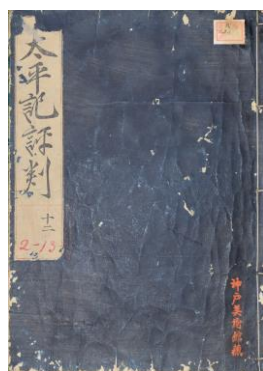 太平記評判
十二
2-13
神戸美術館蔵